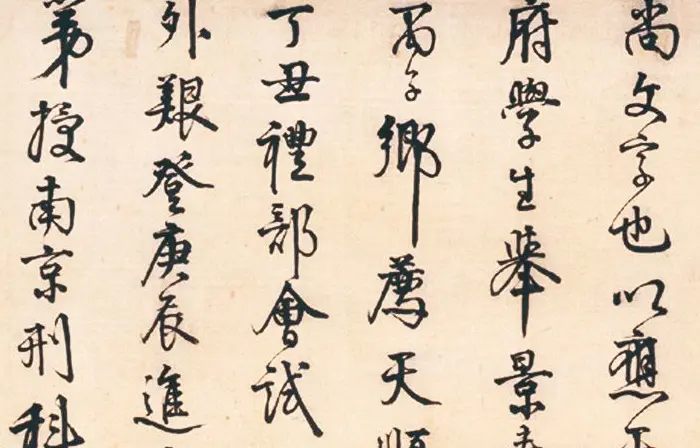 尚文字也以應天
府學生舉景泰
丙子鄉薦天順
丁丑禮部會試
外艱登庚辰進
第授南京刑科